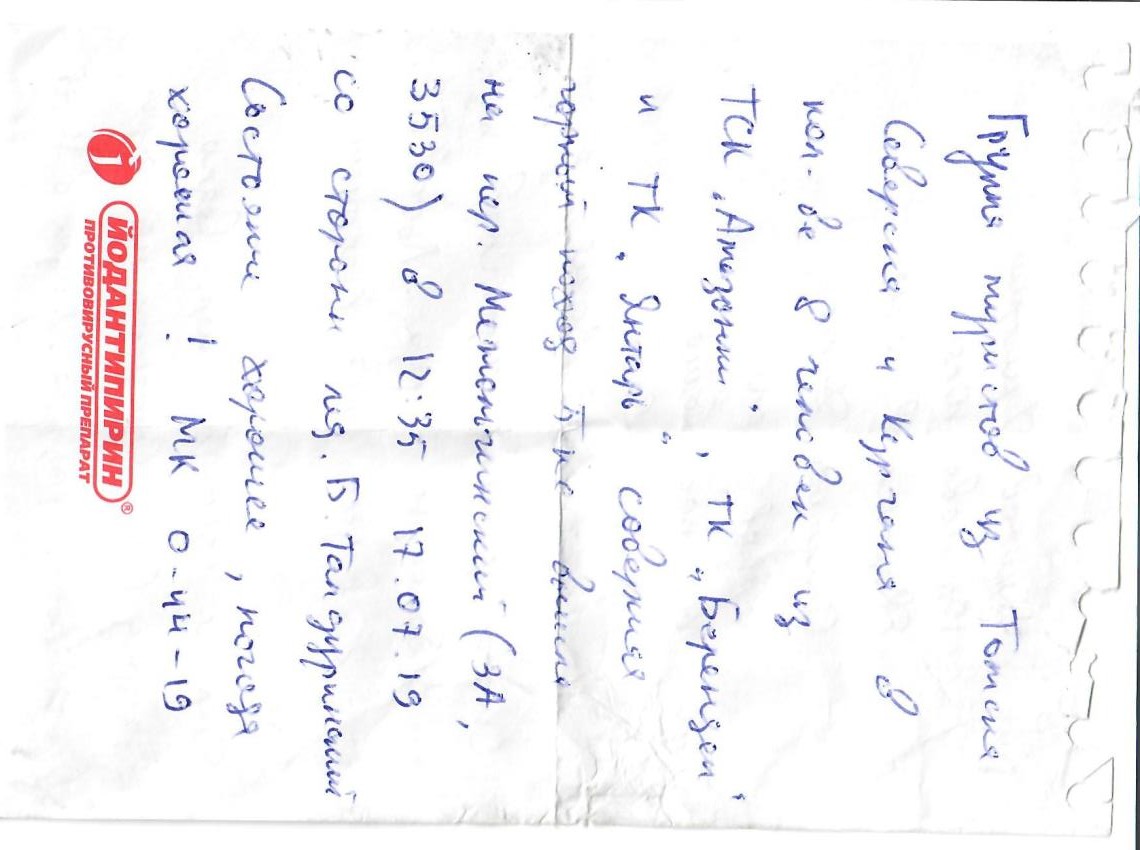 Группа туристов из Томска
Северска и Кургана в
кол-ве 8 человек из
ТСК "Амазонки", ТК "Берендеи"
и ТК "Янтарь" совершая
горный поход 5 к.с вышла
на пер. (3А,
3530) в 12:35 17.07.19
со стороны лед. Б. Талдуринский
Состояние хорошее, погода
хорошая! МК 0-44-19
ЙОДАНТИПИРИН®
ПРОТИВОВИРУСНЫЙ ПРЕПАРАТ